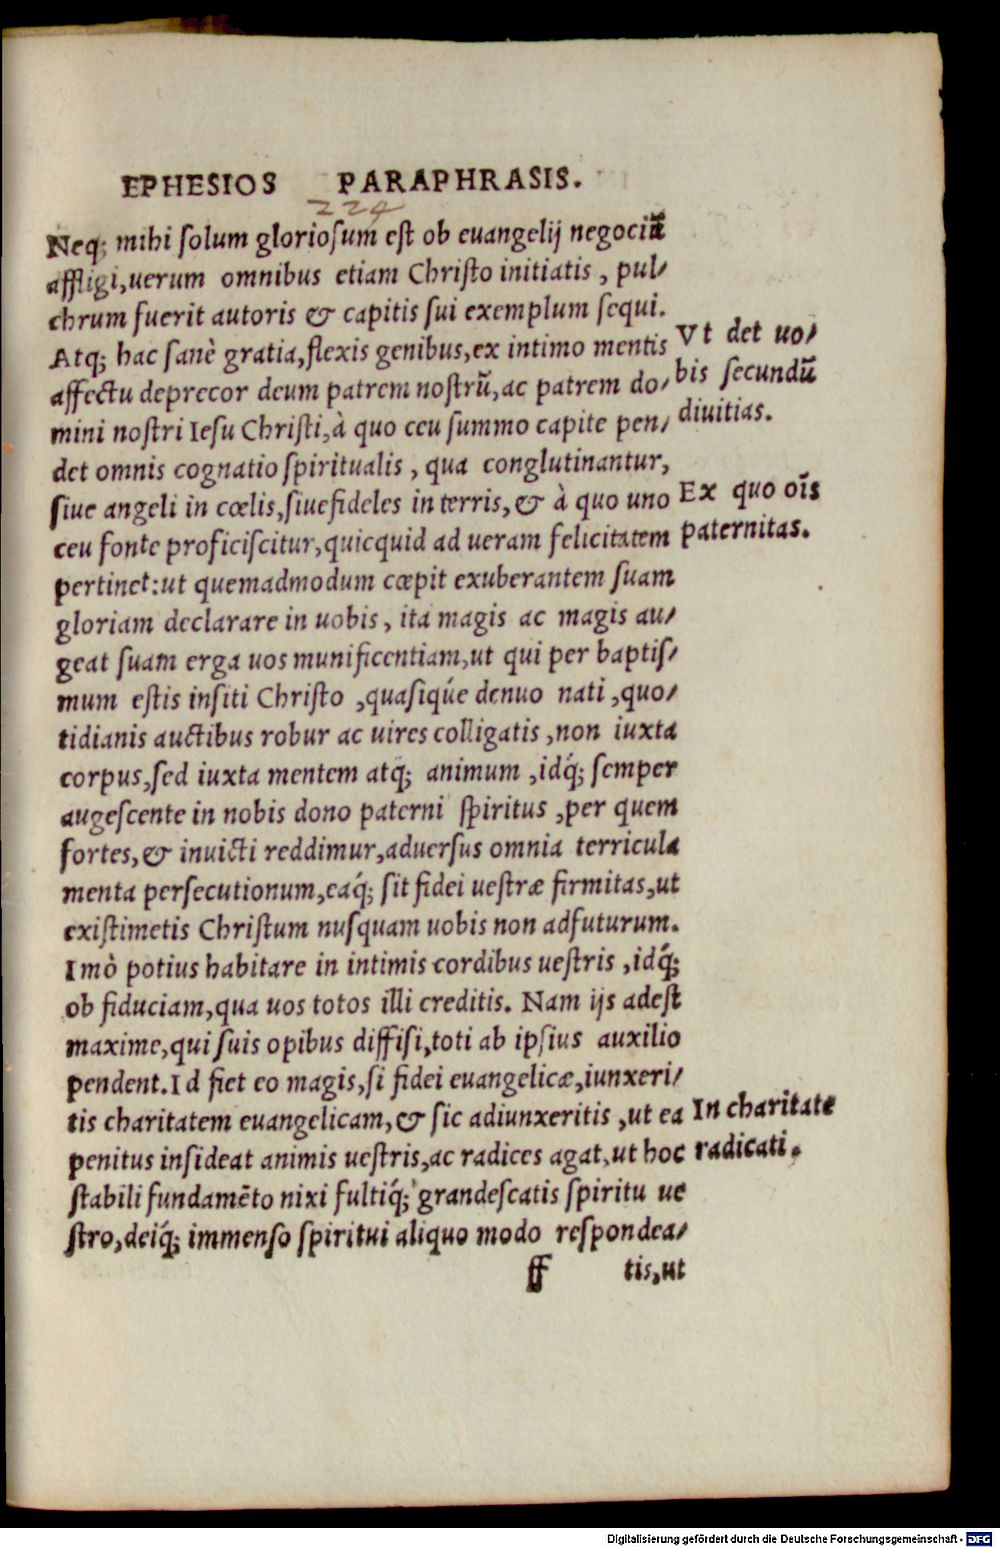 EPHESIOS PARAPHRASIS.
224
Neq; mihi solum gloriosum est ob euangelij negociũ
affligi,uerum omnibus etiam Christo initiatis, pul/
chrum fuerit autoris & capitis sui exemplum sequi.
Atq; hac sanè gratia,flexis genibus,ex intimo mentis
affectu deprecor deum patrem nostrũ,ac patrem do/
mini nostri Iesu Christi,à quo ceu summo capite pen/
det omnis cognatio spiritualis, qua conglutinantur,
siue angeli in cœlis,siue fideles in terris,& à quo uno
ceu fonte proficiscitur,quicquid ad ueram felicitatem
pertinet:ut quemadmodum cœpit exuberantem suam
gloriam declarare in uobis, ita magis ac magis au/
geat suam erga uos munificentiam,ut qui per baptis/
mum estis insiti Christo ,quasiq́ue denuo nati ,quo/
tidianis auctibus robur ac uires colligatis ,non iuxta
corpus,sed iuxta mentem atq; animum ,idq́; semper
augescente in nobis dono paterni spiritus ,per quem
fortes,& inuicti reddimur,aduersus omnia terricula
menta persecutionum,eaq́; sit fidei uestræ firmitas,ut
existimetis Christum nusquam uobis non adfuturum.
Imò potius habitare in intimis cordibus uestris ,idq́;
ob fiduciam,qua uos totos illi creditis. Nam ijs adest
maxime,qui suis opibus diffisi,toti ab ipsius auxilio
pendent.Id fiet eo magis,si fidei euangelicæ,iunxeri/
tis charitatem euangelicam,& sic adiunxeritis ,ut ea
penitus insideat animis uestris,ac radices agat,ut hoc
stabili fundamẽto nixi fultiq́; grandescatis spiritu ue
stro,deiq́; immenso spiritui aliquo modo respondea/
ff tis,ut
Vt det uo/
bis secundũ
diuitias.
Ex quo oĩs
paternitas.
In charitate
radicati.
Digitalisierung gefördert durch die Deutsche Forschungsgemeinschaft - DFG